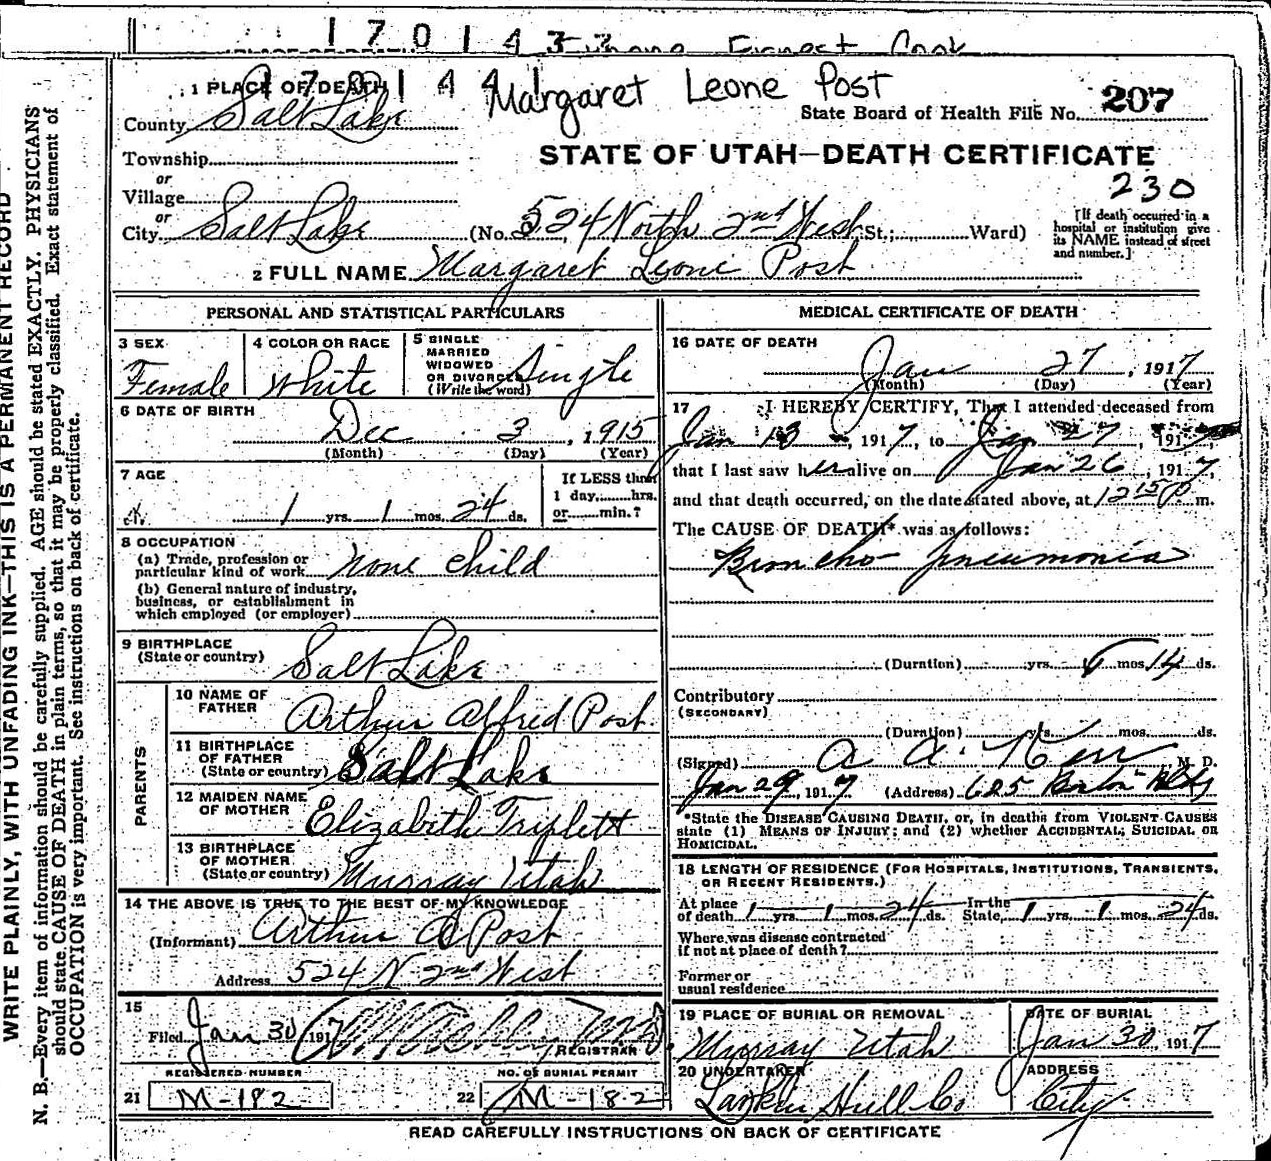 1 7 0 1 4 3 Ernest Cook
1 PLACE OF DEATH 1 7 0 1 4 4 Margaret Leone Post
State Board of Health File No. 207
County Salt Lake
STATE OF UTAH—DEATH CERTIFICATE
Township
230
or
Village
or
City Salt Lake (No. 524 North 2nd West St.; Ward)
[If death occurred in a hospital or institution give its NAME instead of street and number.]
2 FULL NAME Margaret Leone Post
PERSONAL AND STATISTICAL PARTICULARS
3 SEX Female
4 COLOR OR RACE White
5 SINGLE MARRIED WIDOWED OR DIVORCED (Write the word) Single
6 DATE OF BIRTH
Dec 3, 1915
(Month) (Day) (Year)
7 AGE
1 yrs. 1 mos. 24 ds.
If LESS than 1 day, hrs. or min.?
8 OCCUPATION
(a) Trade, profession or particular kind of work None Child
(b) General nature of industry, business, or establishment in which employed (or employer)
9 BIRTHPLACE
(State or country) Salt Lake
PARENTS
10 NAME OF FATHER Arthur Alfred Post
11 BIRTHPLACE OF FATHER (State or country) Salt Lake
12 MAIDEN NAME OF MOTHER Elizabeth Triplett
13 BIRTHPLACE OF MOTHER (State or country) Murray Utah
14 THE ABOVE IS TRUE TO THE BEST OF MY KNOWLEDGE
(Informant) Arthur A Post
Address 524 N 2nd West
15
Filed Jan 30 1917 M.D. REGISTRAR
REGISTERED NUMBER
21 M-182
NO. OF BURIAL PERMIT
22 M-182
MEDICAL CERTIFICATE OF DEATH
16 DATE OF DEATH
Jan 27, 1917
(Month) (Day) (Year)
17 I HEREBY CERTIFY, That I attended deceased from
Jan 13, 1917, to Jan 27, 1917
that I last saw her alive on Jan 26, 1917,
and that death occurred, on the date stated above, at 12 15 P m.
The CAUSE OF DEATH* was as follows:
Broncho pneumonia
(Duration) yrs. mos. 14 ds.
Contributory
(SECONDARY)
(Duration) yrs. mos. ds.
(Signed) A. A. Kerr M. D.
Jan 29, 1917 (Address) 625 Boston Bldg
*State the DISEASE CAUSING DEATH, or, in deaths from VIOLENT CAUSES
state (1) MEANS OF INJURY; and (2) whether ACCIDENTAL, SUICIDAL OR
HOMICIDAL.
18 LENGTH OF RESIDENCE (FOR HOSPITALS, INSTITUTIONS, TRANSIENTS,
OR RECENT RESIDENTS.)
At place of death 1 yrs. 1 mos. 24 ds. In the State, 1 yrs. 1 mos. 24 ds.
Where was disease contracted
if not at place of death?
Former or
usual residence
19 PLACE OF BURIAL OR REMOVAL
Murray Utah
DATE OF BURIAL
Jan 30, 1917
20 UNDERTAKER
Larkin Hull Co
ADDRESS
City
READ CAREFULLY INSTRUCTIONS ON BACK OF CERTIFICATE
WRITE PLAINLY, WITH UNFADING INK—THIS IS A PERMANENT RECORD
N. B.—Every item of information should be carefully supplied. AGE should be stated EXACTLY. PHYSICIANS
should state CAUSE OF DEATH in plain terms, so that it may be properly classified. Exact statement of
OCCUPATION is very important. See instructions on back of certificate.